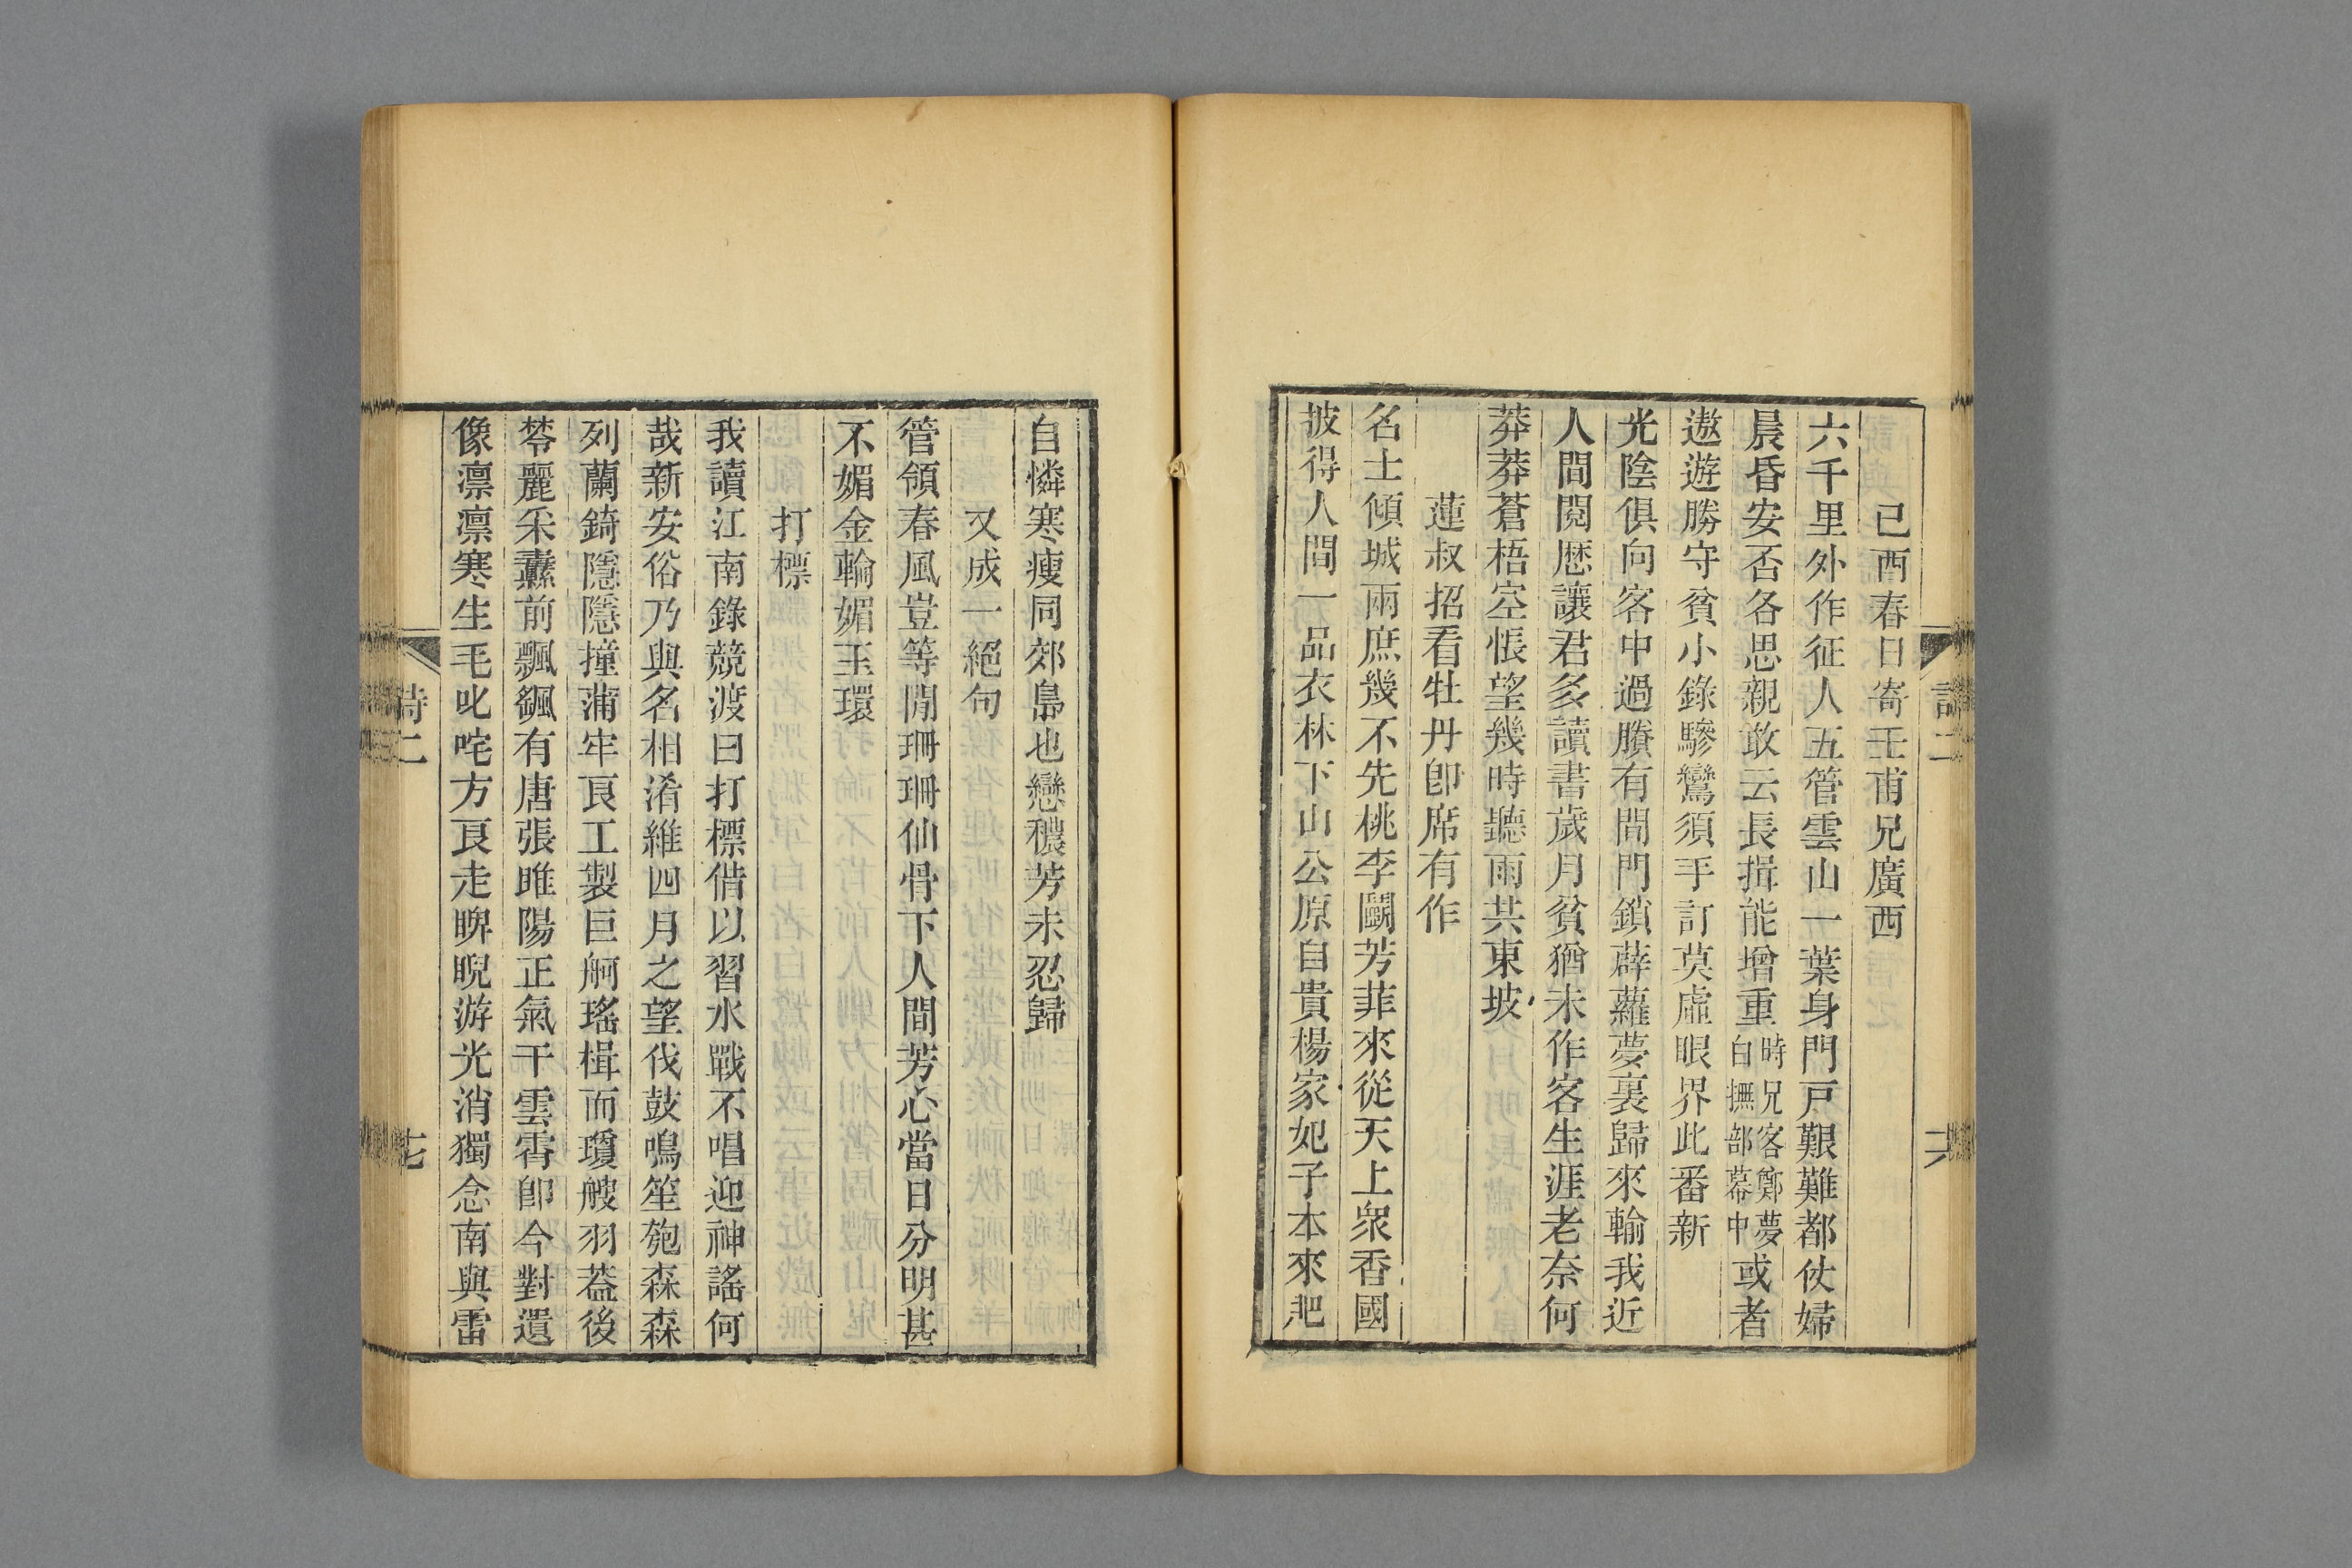 己酉春日寄壬甫兄廣西
六千里外作征人五管雲山一葉身門戸艱難都仗婦
晨昏安否各思親敢云長揖能增重時兄客鄭夢白撫部幕中或者
遨遊勝守貧小錄驂鸞須手訂莫虛眼界此番新
光陰俱向客中過賸有閒門鎖薜蘿夢裏歸來輸我近
人間閱歷讓君多讀書歲月貧猶未作客生涯老奈何
莽莽蒼梧空悵望幾時聽雨共東坡
蓮叔招看牡丹卽席有作
名士傾城兩庶幾不先桃李鬭芳菲來從天上衆香國
披得人間一品衣林下山公原自貴楊家妃子本來肥
詩二
六
自憐寒瘦同郊島也戀穠芳未忍歸
又成一絕句
管領春風豈等閒珊珊仙骨下人間芳心當日分明甚
不媚金輪媚玉環
打標
我讀江南錄競渡曰打標偕以習水戰不唱迎神謠何
哉新安俗乃與名相淆維四月之望伐鼓鳴笙匏森森
列蘭錡隱隱撞蒲牢良工製巨舸瑤楫而瓊艘羽葢後
棽麗采纛前飄颻有唐張睢陽正氣干雲霄卽今對遺
像凛凛寒生毛叱咤方良走睥睨游光消獨念南與雷
詩二
七